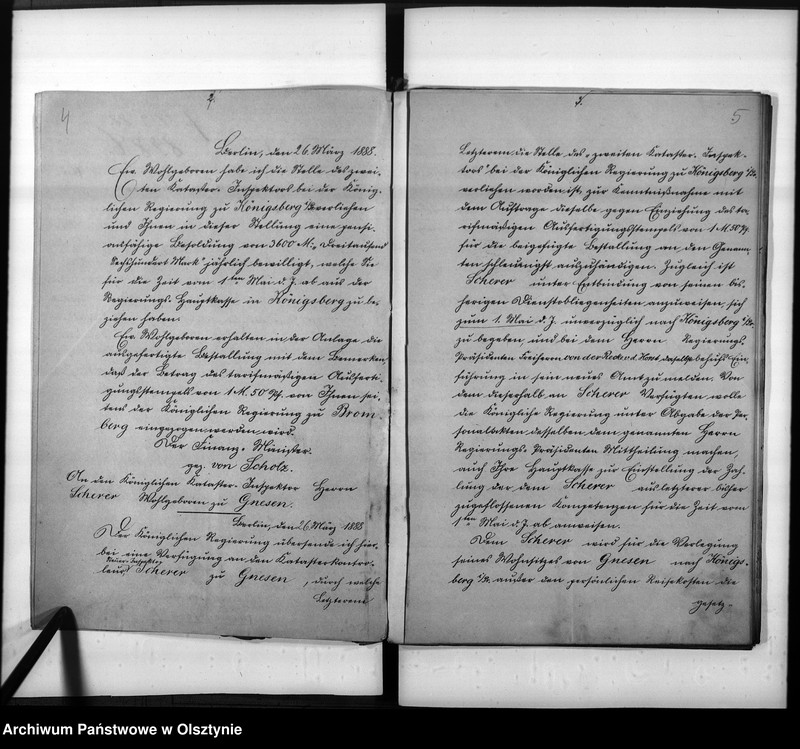 4
2.
Berlin, den 26. März 1888.
Ew. Wohlgeboren habe ich die Stelle des zwei-
ten Kataster-Inspektors bei der König-
lichen Regierung zu Königsberg i/Pr. verliehen
und Ihnen in dieser Stellung eine pensi-
onsfähige Besoldung von 3600 M., "Dreitausend
Sechshundert Mark" jährlich bewilligt, welche Sie
für die Zeit vom 1ten Mai d. J. ab aus der
Regierungs-Hauptkasse in Königsberg zu be-
ziehen haben.
Ew. Wohlgeboren erhalten in der Anlage die
ausgefertigte Bestallung mit dem Bemerken,
daß der Betrag des tarifmäßigen Ausferti-
gungsstempels von 1 M. 50 Pf. von Ihnen sei-
tens der Königlichen Regierung zu Brom-
berg eingezogen werden wird.
Der Finanz-Minister.
gez. von Scholz.
An den Königlichen Kataster-Inspektor Herrn
Scherer Wohlgeboren zu Gnesen.
Berlin, den 26. März 1888
Der Königlichen Regierung übersende ich hier-
bei eine Verfügung an den Katasterkontor-
leur Scherer zu Gnesen, durch welche
Letzterem
5
3.
Letzterem die Stelle des "zweiten Kataster-Inspek-
tors" bei der Königlichen Regierung zu Königsberg i/Pr.
verliehen worden ist, zur Kenntnißnahme mit
dem Auftrage dieselbe gegen Einziehung des ta-
rifmäßigen Ausfertigungsstempels von 1 M. 50 Pf.
für die beigefügte Bestallung an den Genann-
ten schleunigst auszuhändigen. Zugleich ist
Scherer unter Entbindung von seinen bis-
herigen Dienstobliegenheiten anzuweisen, sich
zum 1. Mai d. J. unverzüglich nach Königsberg i/Pr.
zu begeben, und bei dem Herrn Regierungs-
Präsidenten Freiherrn von der Recke v. d. Horst daselbst behufs Ein-
führung in sein neues Amt zu melden. Von
dem dieserhalb an Scherer Verfügten wolle
die Königliche Regierung unter Abgabe der Per-
sonalakten desselben dem genannten Herrn
Regierungs-Präsidenten Mittheilung machen,
auch Ihre Hauptkasse zur Einstellung der Zah-
lung der dem Scherer aus letzterer bisher
zugeflossenen Kompetenzen für die Zeit vom
1ten Mai d. J. ab anweisen.
Dem Scherer wird für die Verlegung
seines Wohnsitzes von Gnesen nach Königs-
berg i/Pr. außer den persönlichen Reisekosten die
gesetz-
Archiwum Państwowe w Olsztynie